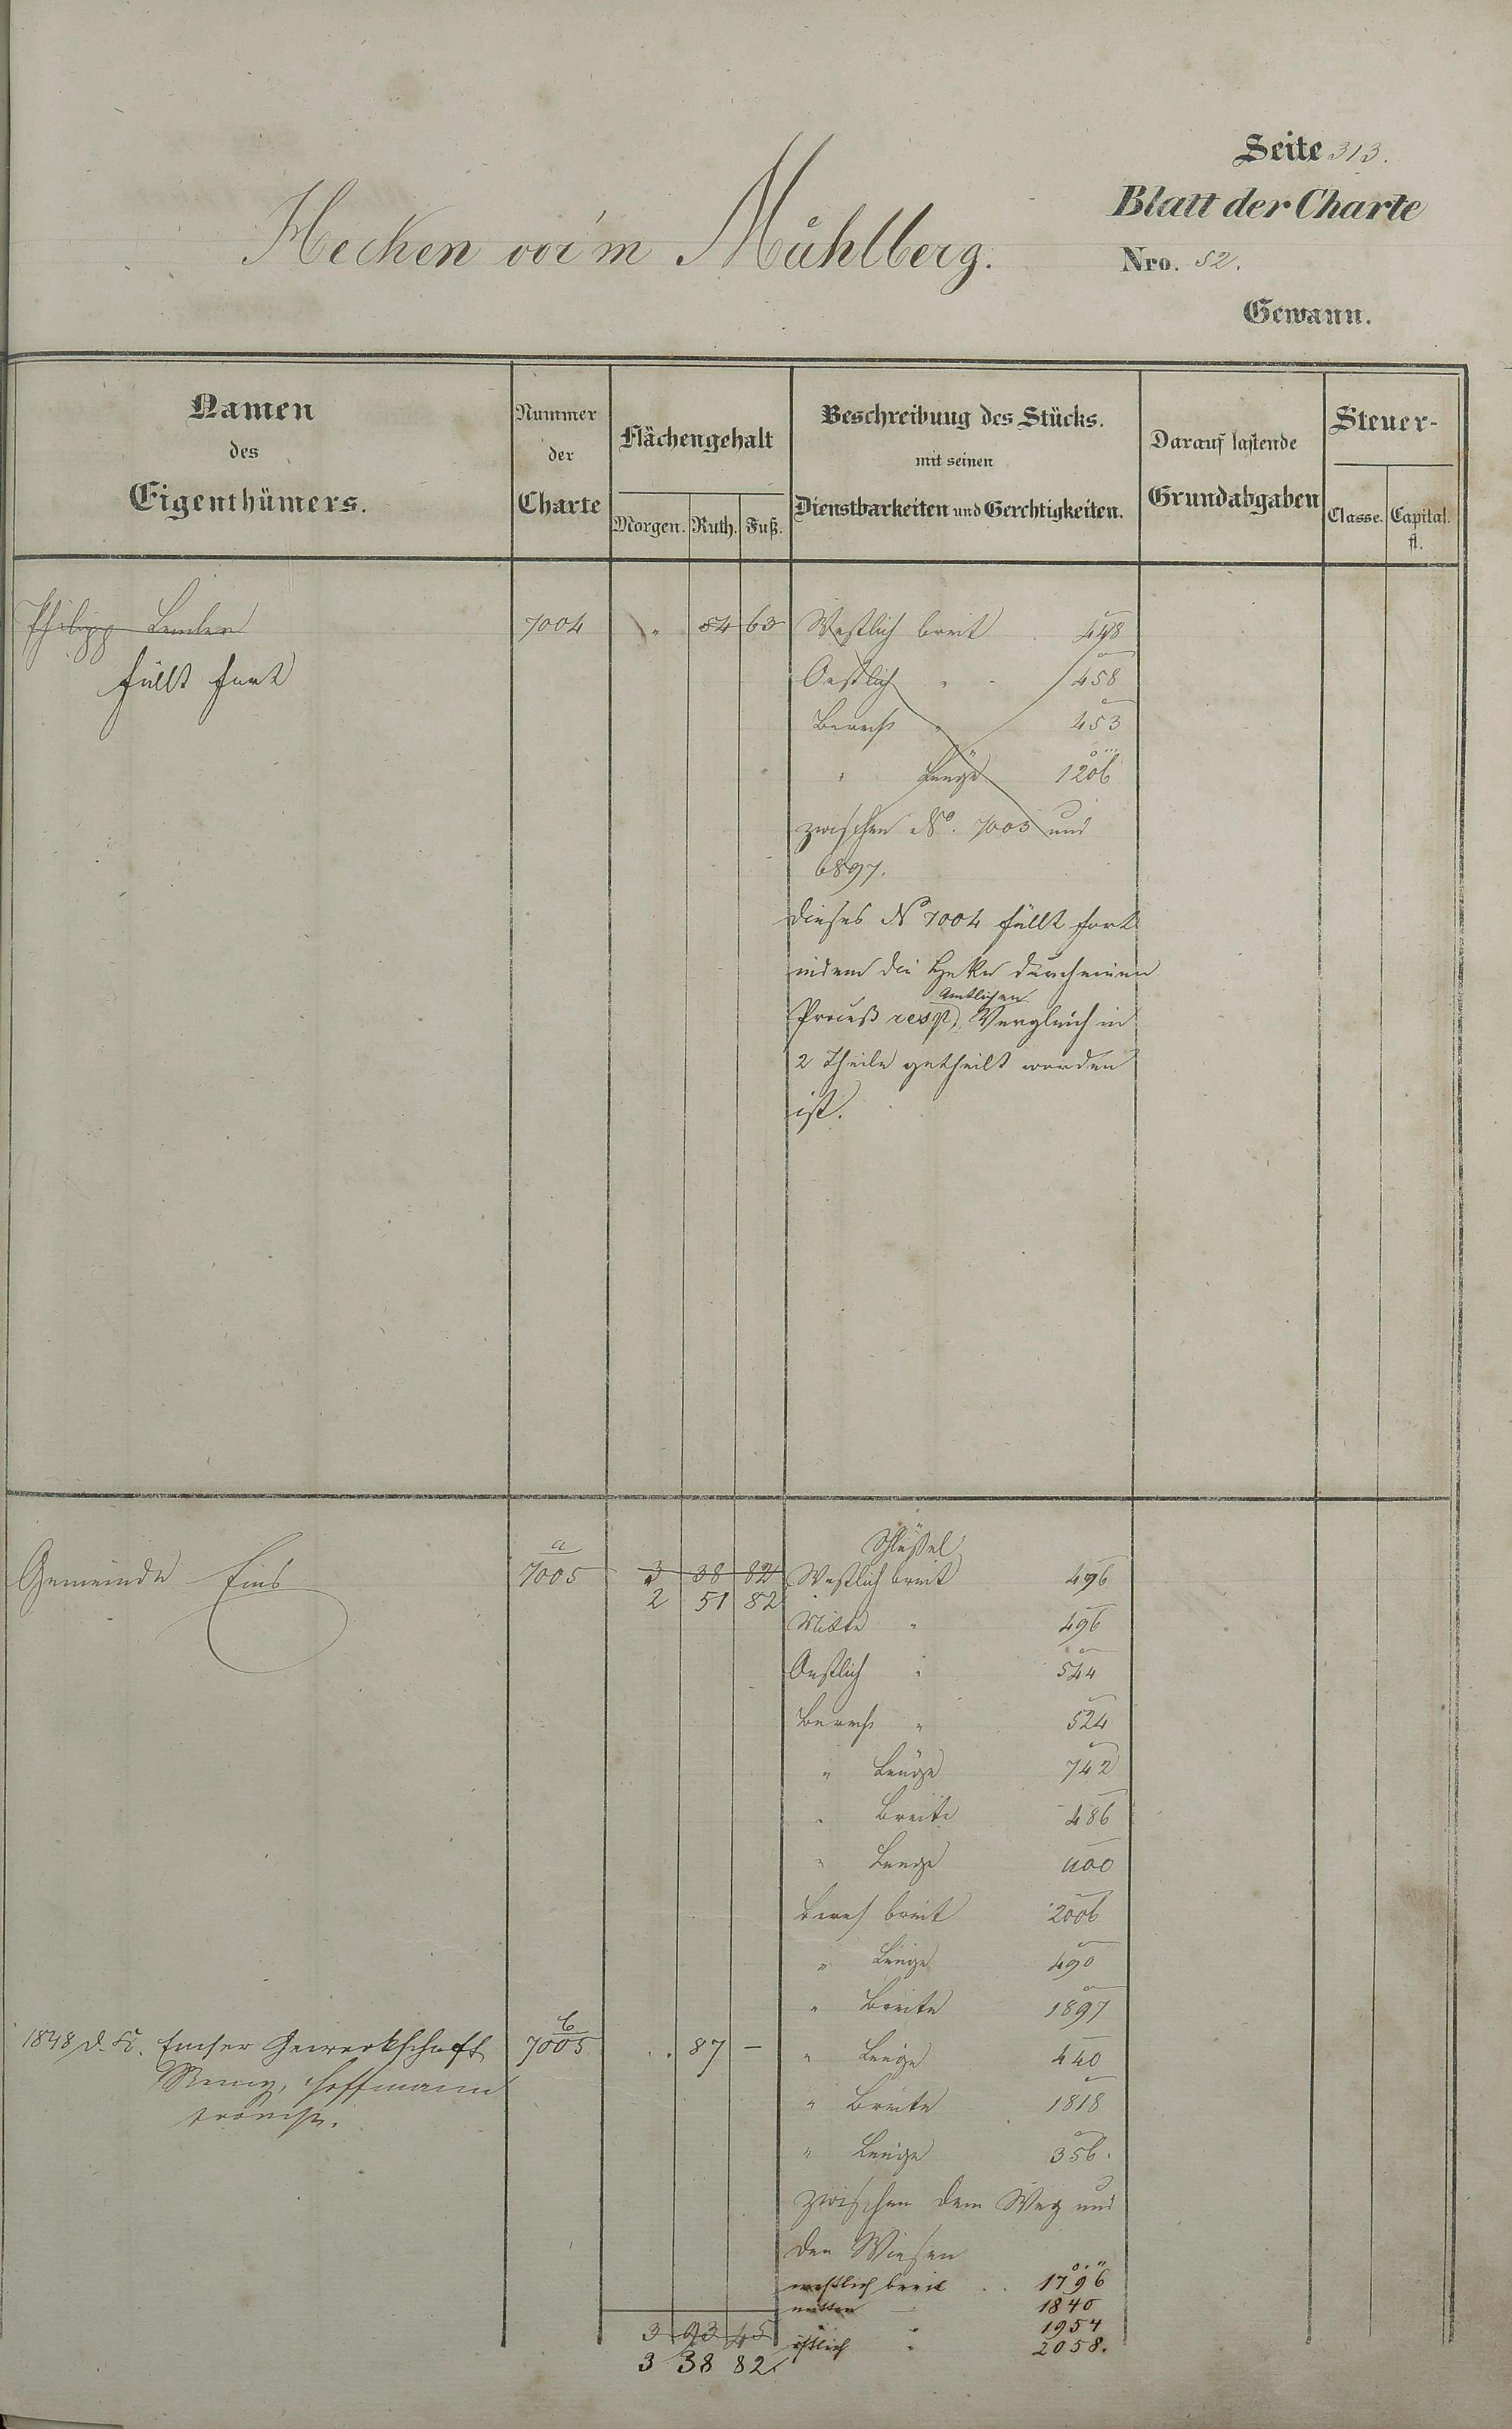 Seite 313.
Blatt der Charte
Hecken vor'm Mühlberg.
Nro. 52.
Gewann.
Namen
des
Eigenthümers.
Nummer
der
Charte
Flächengehalt
Morgen. Ruth. Fuß.
Beschreibung des Stücks.
mit seinen
Dienstbarkeiten und Gerechtigkeiten.
Darauf lastende
Grundabgaben
Steuer-
Classe. Capital.
fl.
Philipp Linkler
fällt fort
7004 " 54 63 Westlich breit 448
Oestlich " 458
Berech " 453
" Länge 1206
zwischen No. 7003 und
6897.
dieses No 7004 fällt fort
indem die Hecke durch einen
Amtlichen
Proceß resp. Vergleich in
2 Theile getheilt worden
ist.
Schlüßel
Gemeinde Ems
a
7005 3 38 82 Westlich breit 496
2 51 82
Mitte " 496
Oestlich " 544
Berech " 524
" Länge 742
" Breite 486
" Länge 1100
Berech breit 2006
" Länge 490
" Breite 1897
1848 d. Fr. Emser Gewerkschaft
b
7005 . . 87 — " Länge 440
Remy, Hoffmann
" Breite 1818
" Länge 356.
zwischen dem Weg und
den Wiesen
westlich breit . . 1796
mitten — 1840
" 1954
östlich " 2058.
3 93 45
3 38 82.